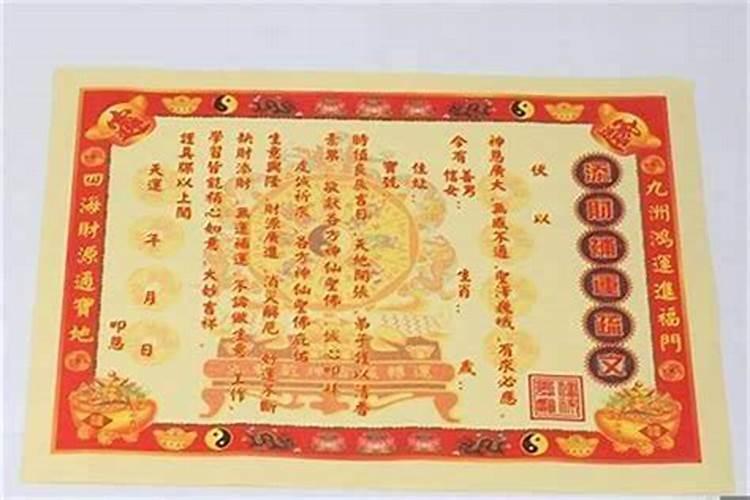 九洲鴻運進福門
添財補運疏文
伏以
神恩廣大 無感不通 聖澤巍峨 有求必應
今有善男信女：生肖：歲：
住址：
寶號
時值良辰吉日 天地開張 弟子謹以清香
素果 敬獻各方神仙聖佛 誠心叩拜
虔誠祈求 各方神仙聖佛庇佑
生意興隆 財源廣進 消災解厄 好運不斷
缺財添財 無運補運 不論做生意、工作、
學習皆能稱心如意、大妙吉祥
謹具疏以上聞
天運 年 月 日 叩懇
四海財源通寶地